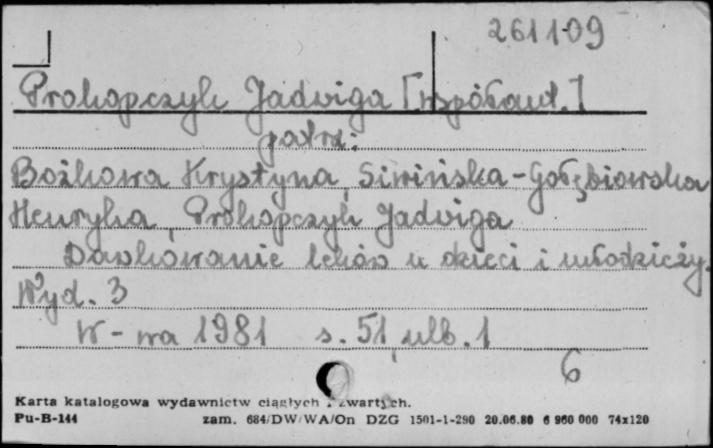 261109
Prokopczyk Jadwiga [współaut.]
patrz:
Bożkowa Krystyna, Siwińska-Gołębiowska
Henryka, Prokopczyk Jadwiga
Dawkowanie leków u dzieci i młodzieży.
Wyd. 3
W-wa 1981 s. 51, ulb. 1
6
Karta katalogowa wydawnictw ciągłych i zwartych.
Pu-B-144 zam. 684/DW/WA/On DZG 1501-1-290 20.06.80 6 960 000 74x120